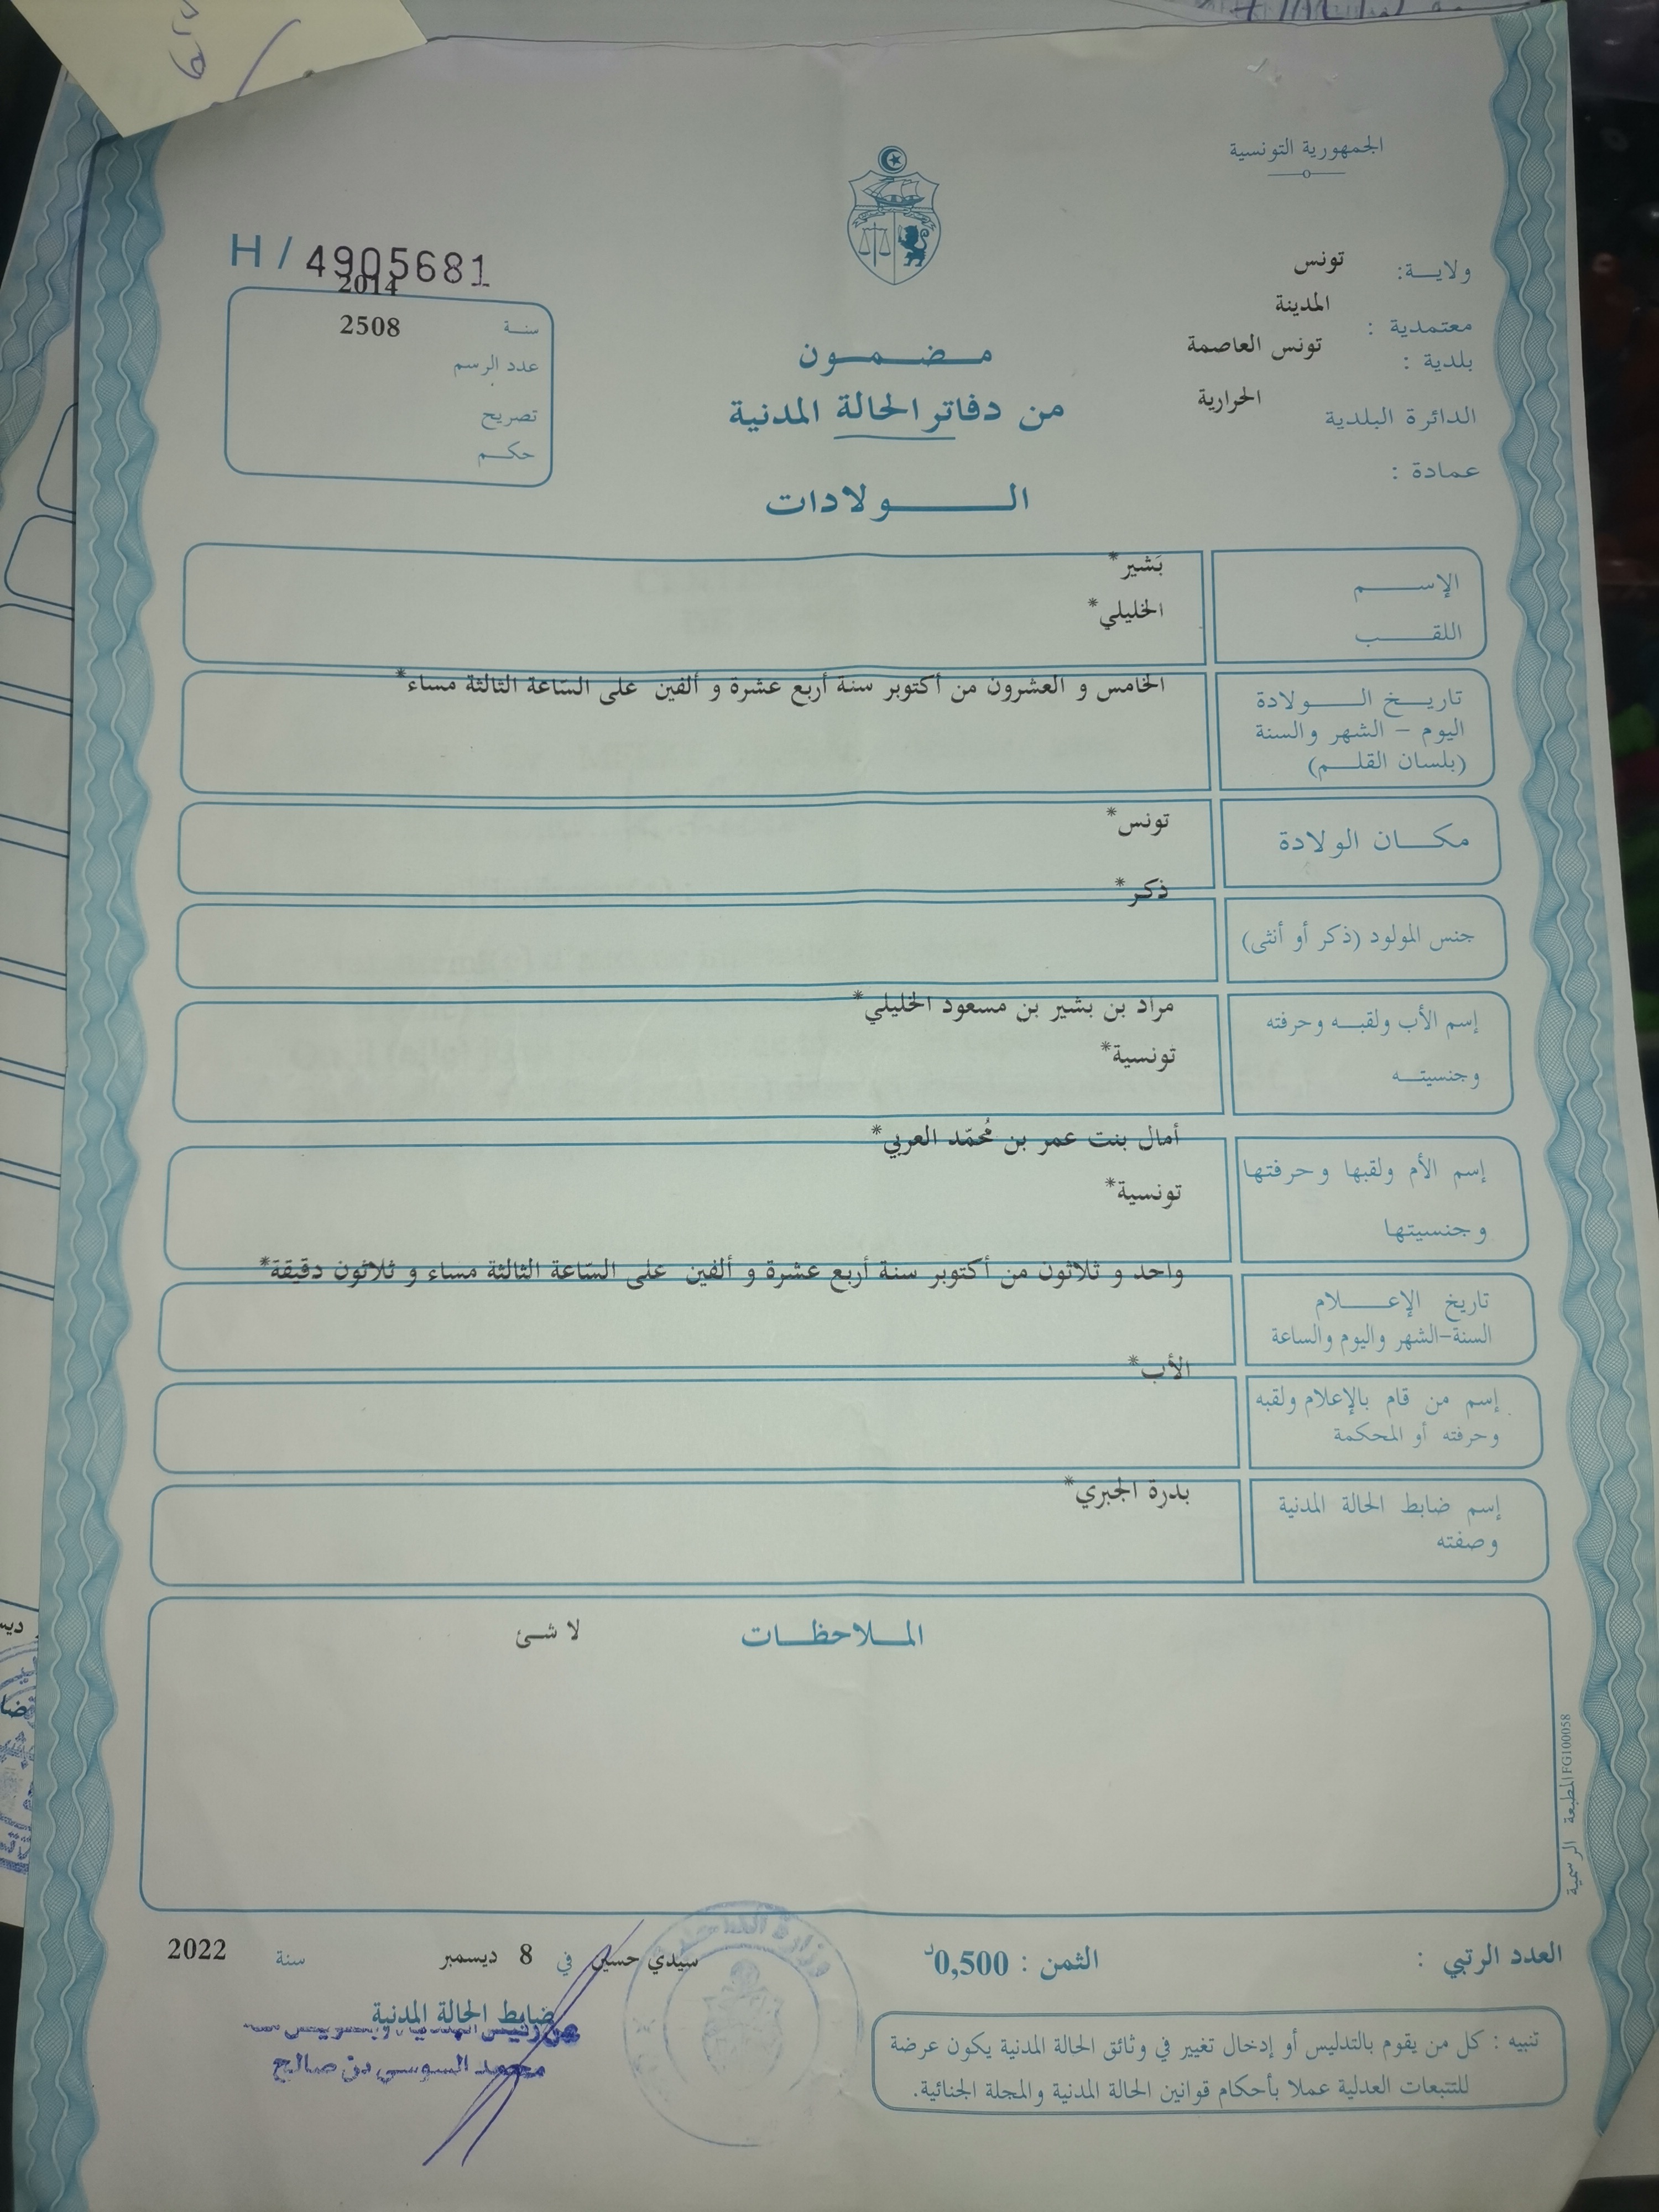 الجمهورية التونسية
ولايـــة: تونس
معتمدية : المدينة
بلدية : تونس العاصمة
الدائرة البلدية الحرارية
عمادة :
H / 4905681
2014
سنـة 2508
عدد الرسم
تصريح
حكـم
مـضـمـون
من دفاتر الحالة المدنية
الـولادات
الإسـم بَشير*
اللقـب الخليلي*
تاريـخ الـولادة الخامس و العشرون من أكتوبر سنة أربع عشرة و ألفين على السّاعة الثالثة مساء*
اليوم – الشهر والسنة
(بلسان القلـم)
مكـان الولادة تونس*
ذكر*
جنس المولود (ذكر أو أنثى)
إسم الأب ولقبـه وحرفته مراد بن بشير بن مسعود الخليلي*
وجنسيتـه تونسية*
أمال بنت عمر بن مُحمّد العربي*
إسم الأم ولقبها وحرفتها
وجنسيتها تونسية*
واحد و ثلاثون من أكتوبر سنة أربع عشرة و ألفين على السّاعة الثالثة مساء و ثلاثون دقيقة*
تاريخ الإعـلام
السنة-الشهر واليوم والساعة
الأب*
إسم من قام بالإعلام ولقبه
وحرفته أو المحكمة
بدرة الجبري*
إسم ضابط الحالة المدنية
وصفته
المـلاحظـات لا شئ
المطبعة الرسمية FG100058
العدد الرتبي :
الثمن : 0,500د
سيدي حسين في 8 ديسمبر سنة 2022
ضابط الحالة المدنية
محمد السوسي بن صالح
وزارة
تنبيه : كل من يقوم بالتدليس أو إدخال تغيير في وثائق الحالة المدنية يكون عرضة
للتتبعات العدلية عملا بأحكام قوانين الحالة المدنية والمجلة الجنائية.